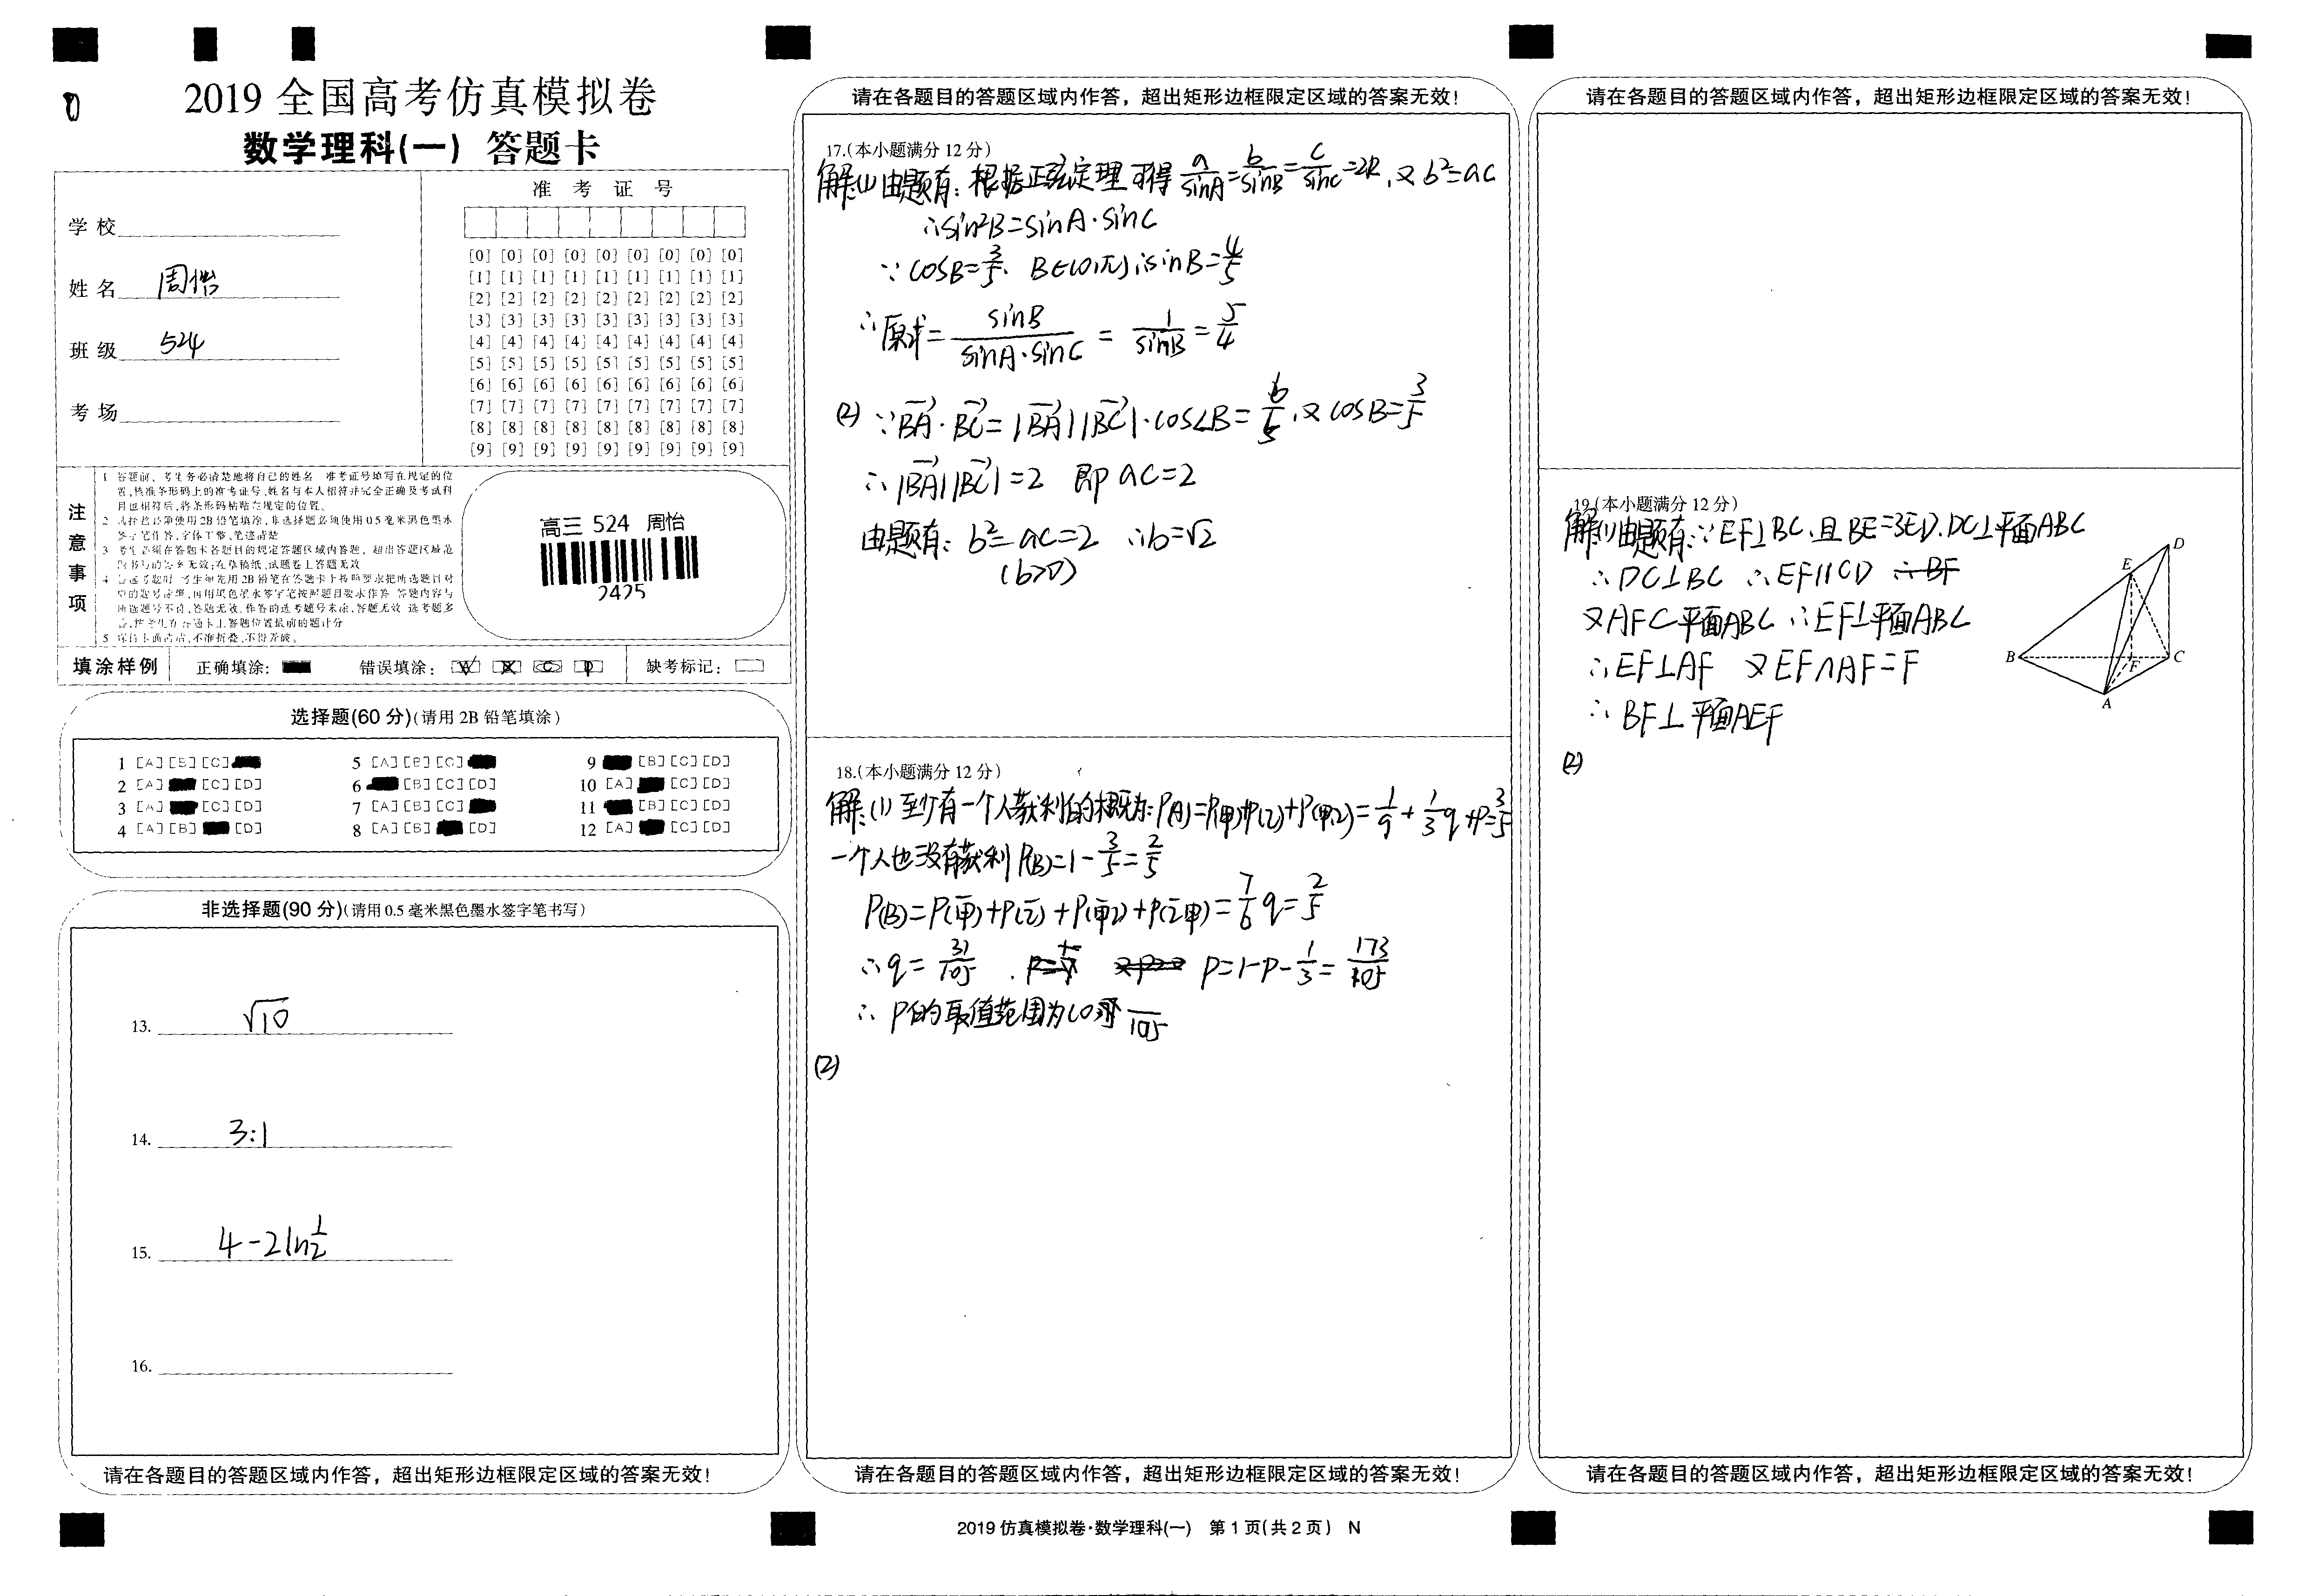 2019 全国高考仿真模拟卷
数学理科(一) 答题卡
学校
姓名 周怡
班级 524
考场
准考证号
[0] [0] [0] [0] [0] [0] [0] [0] [0]
[1] [1] [1] [1] [1] [1] [1] [1] [1]
[2] [2] [2] [2] [2] [2] [2] [2] [2]
[3] [3] [3] [3] [3] [3] [3] [3] [3]
[4] [4] [4] [4] [4] [4] [4] [4] [4]
[5] [5] [5] [5] [5] [5] [5] [5] [5]
[6] [6] [6] [6] [6] [6] [6] [6] [6]
[7] [7] [7] [7] [7] [7] [7] [7] [7]
[8] [8] [8] [8] [8] [8] [8] [8] [8]
[9] [9] [9] [9] [9] [9] [9] [9] [9]
注意事项
1 答题前，考生务必清楚地将自己的姓名 准考证号填写在规定的位
置,核准条形码上的准考证号、姓名与本人相符并完全正确及考试科
目也相符后,将条形码粘贴在规定的位置。
2 选择题必须使用2B铅笔填涂,非选择题必须使用0.5毫米黑色墨水
签字笔作答,字体工整、笔迹清楚
3 考生必须在答题卡各题目的规定答题区域内答题，超出答题区域范
围书写的答案无效;在草稿纸、试题卷上答题无效
5 保持卡面清洁,不准折叠、不得弄破。
高三 524 周怡
2425
填涂样例 正确填涂: 错误填涂: 缺考标记:
选择题(60 分)(请用 2B 铅笔填涂)
1 [A] [B] [C] 5 [A] [B] [C] 9 [B] [C] [D]
2 [A] [C] [D] 6 [B] [C] [D] 10 [A] [C] [D]
3 [A] [C] [D] 7 [A] [B] [C] 11 [B] [C] [D]
4 [A] [B] [D] 8 [A] [B] [D] 12 [A] [C] [D]
非选择题(90 分)(请用 0.5 毫米黑色墨水签字笔书写)
13. √10
14. 3:1
15. 4-2ln1/2
16.
请在各题目的答题区域内作答，超出矩形边框限定区域的答案无效!
请在各题目的答题区域内作答，超出矩形边框限定区域的答案无效!
17.(本小题满分 12 分)
解:(1)由题有:根据正弦定理可得 a/sinA=b/sinB=c/sinC=2R,又b²=ac
∴sin²B=sinA·sinC
∵cosB=3/5. B∈(0,π)∴sinB=4/5
∴原式=sinB/(sinA·sinC)=1/sinB=5/4
(2) ∵BA·BC=|BA||BC|·cos∠B=6/5,又cosB=3/5
∴|BA||BC|=2 即 ac=2
由题有: b²=ac=2 ∴b=√2
(b>0)
18.(本小题满分 12 分)
解:(1)至少有一个人获利的概率为:P(A)=P(甲)P(乙)+P(甲乙)=1/9+1/3q+P=3/5
一个人也没有获利 P(B)=1-3/5=2/5
P(B)=P(甲)+P(乙)+P(甲乙)+P(乙甲)=7/6q=2/5
∴q=31/105 . P=1-P-1/3=173/105
∴P的取值范围为(0 105
(2)
请在各题目的答题区域内作答，超出矩形边框限定区域的答案无效!
2019 仿真模拟卷·数学理科(一) 第 1 页(共 2 页) N
请在各题目的答题区域内作答，超出矩形边框限定区域的答案无效!
19.(本小题满分 12 分)
解:(1)由题有:∵EF⊥BC,且BE=3ED.DC⊥平面ABC
∴DC⊥BC ∴EF∥CD ∴BF
又AF⊂平面ABC ∴EF⊥平面ABC
∴EF⊥AF 又EF∩AF=F
∴BF⊥平面AEF
(2)
D
E
B
F
C
A
请在各题目的答题区域内作答，超出矩形边框限定区域的答案无效!